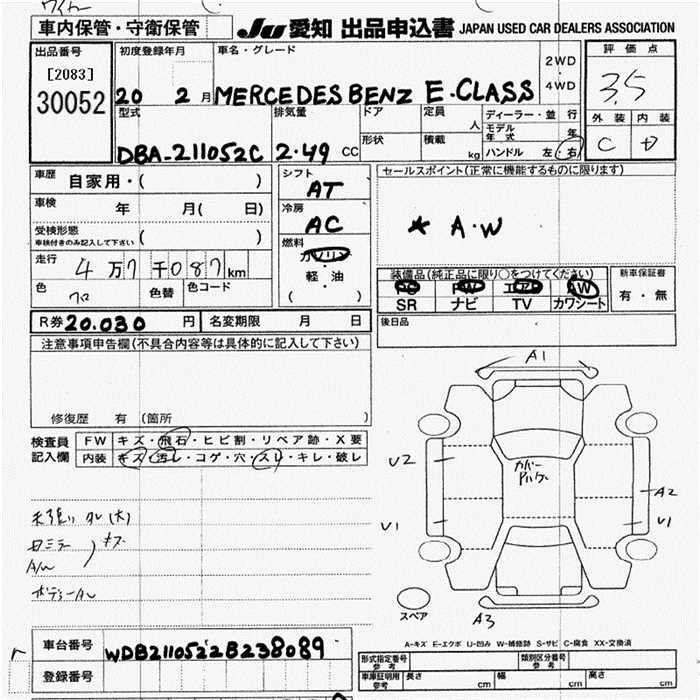 車内保管・守衛保管
JU 愛知 出品申込書 JAPAN USED CAR DEALERS ASSOCIATION
出品番号
[2083]
30052
初度登録年月
20 2 月
車名・グレード
MERCEDES BENZ E.CLASS
2WD
・
4WD
評価点
3.5
外装 内装
C
型式
DBA-211052C
排気量
2.49 CC
ドア
形状
定員
人
積載
kg
ディーラー・並行
モデル年式 年
ハンドル 左・右
車歴
自家用・( )
車検
年 月( 日)
受検形態
車検付きのみ記入して下さい ( )
走行
4万7千087km
色
色替
色コード
シフト
AT
冷房
AC
燃料
ガソリン
・
軽・油
( )
セールスポイント(正常に機能するものに限ります)
★ A・W
装備品(純正品に限り○をつけてください)
PS PW エアB AW
SR ナビ TV カワシート
新車保証書
有・無
後日品
R券 20.030 円
名変期限 月 日
注意事項申告欄(不具合内容等は具体的に記入して下さい)
修復歴 有 (箇所 )
検査員
記入欄
FW キズ・飛石・ヒビ割・リペア跡・X要
内装 キズ・汚レ・コゲ・穴・スレ・キレ・破レ
A/W
A1
U2
U1
A2
U1
A3
スペア
A-キズ E-エクボ U-凹み W-補修跡 S-サビ C-腐食 XX-交換済
車台番号
WDB2110522B238089
登録番号
形式指定番号
参考
類別区分番号
参考
車庫証明用
参考
長さ cm
幅 cm
高さ cm